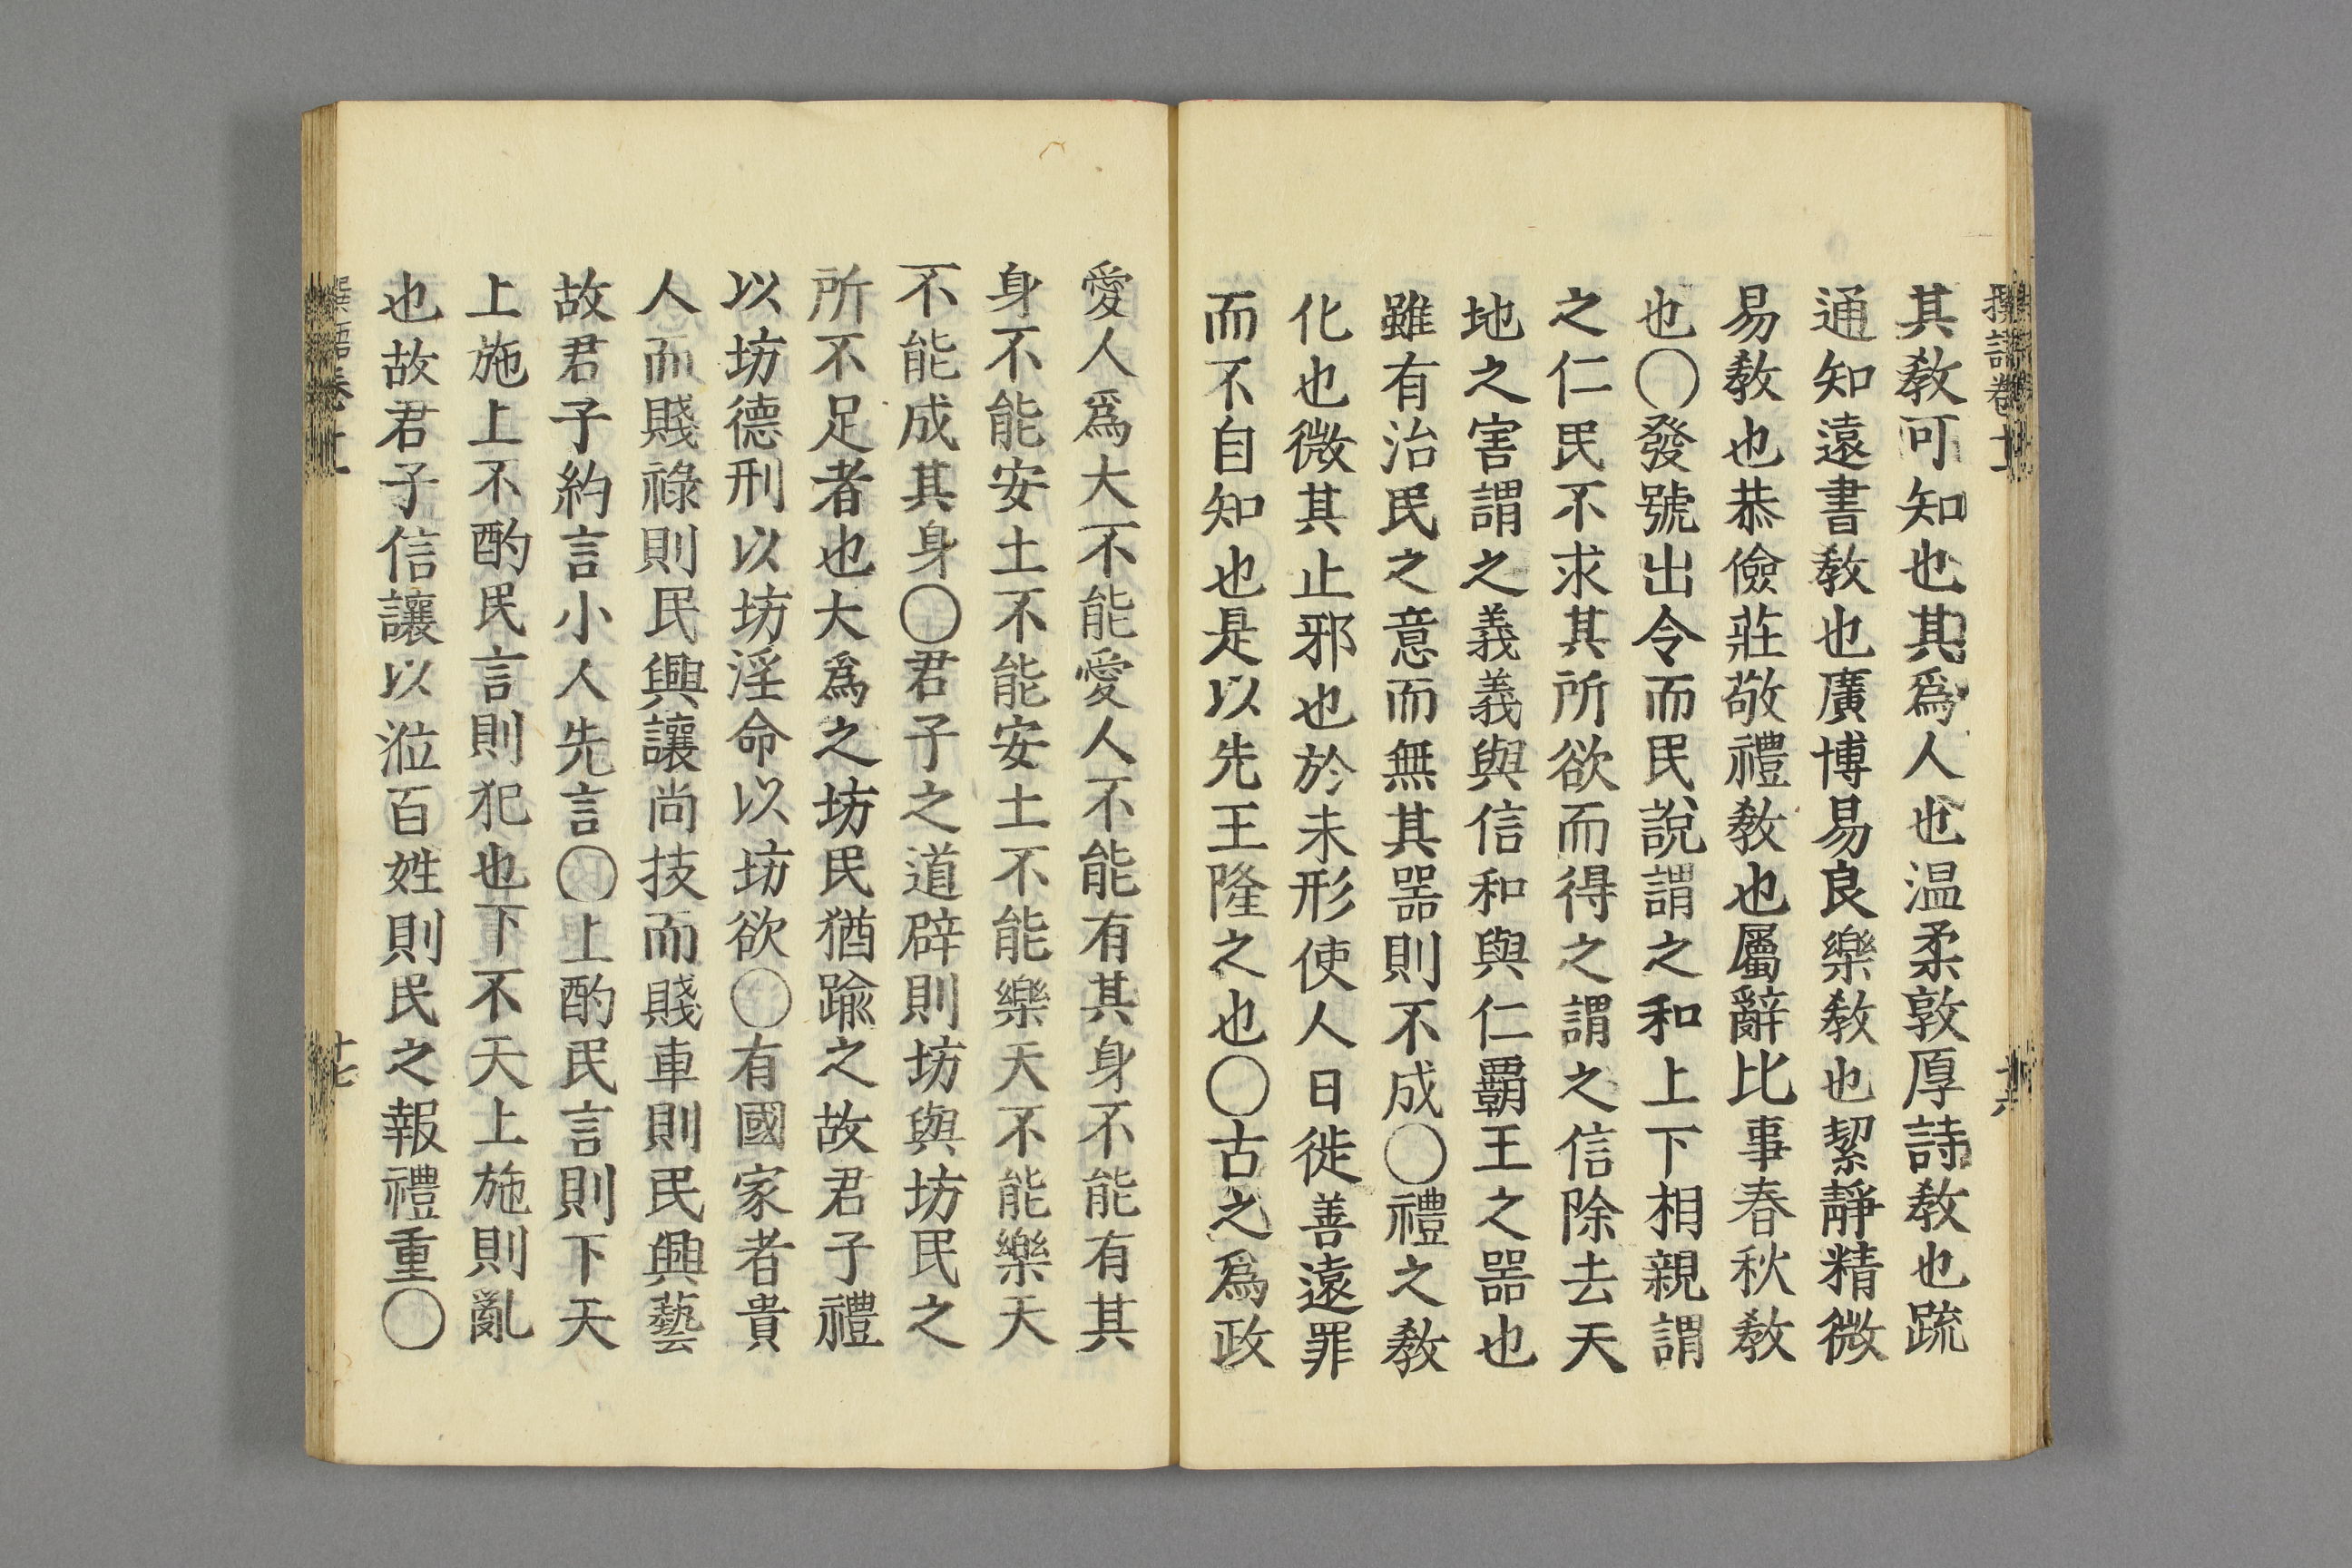 其敎可知也其爲人也温柔敦厚詩敎也疏
通知遠書敎也廣博易良樂敎也絜靜精微
易敎也恭儉莊敬禮敎也屬辭比事春秋敎
也〇發號出令而民說謂之和上下相親謂
之仁民不求其所欲而得之謂之信除去天
地之害謂之義義與信和與仁覇王之噐也
雖有治民之意而無其噐則不成〇禮之敎
化也微其止邪也於未形使人日徙善遠罪
而不自知也是以先王隆之也〇古之爲政
愛人爲大不能愛人不能有其身不能有其
身不能安土不能安土不能樂天不能樂天
不能成其身〇君子之道辟則坊與坊民之
所不足者也大爲之坊民猶踰之故君子禮
以坊德刑以坊淫命以坊欲〇有國家者貴
人而賤祿則民興讓尚技而賤車則民興藝
故君子約言小人先言〇上酌民言則下天
上施上不酌民言則犯也下不天上施則亂
也故君子信讓以涖百姓則民之報禮重〇
十七